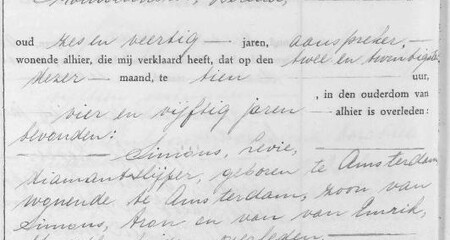 oud zes en veertig jaren, aanspreker,
wonende alhier, die mij verklaard heeft, dat op den twee en twintigste
dezer maand, te tien uur,
, in den ouderdom van
vier en vijftig jaren alhier is overleden:
bevonden:
Simons, Levie,
diamantslijper, geboren te Amsterdam
wonende te Amsterdam, zoon van
Simons, en van van
overleden.